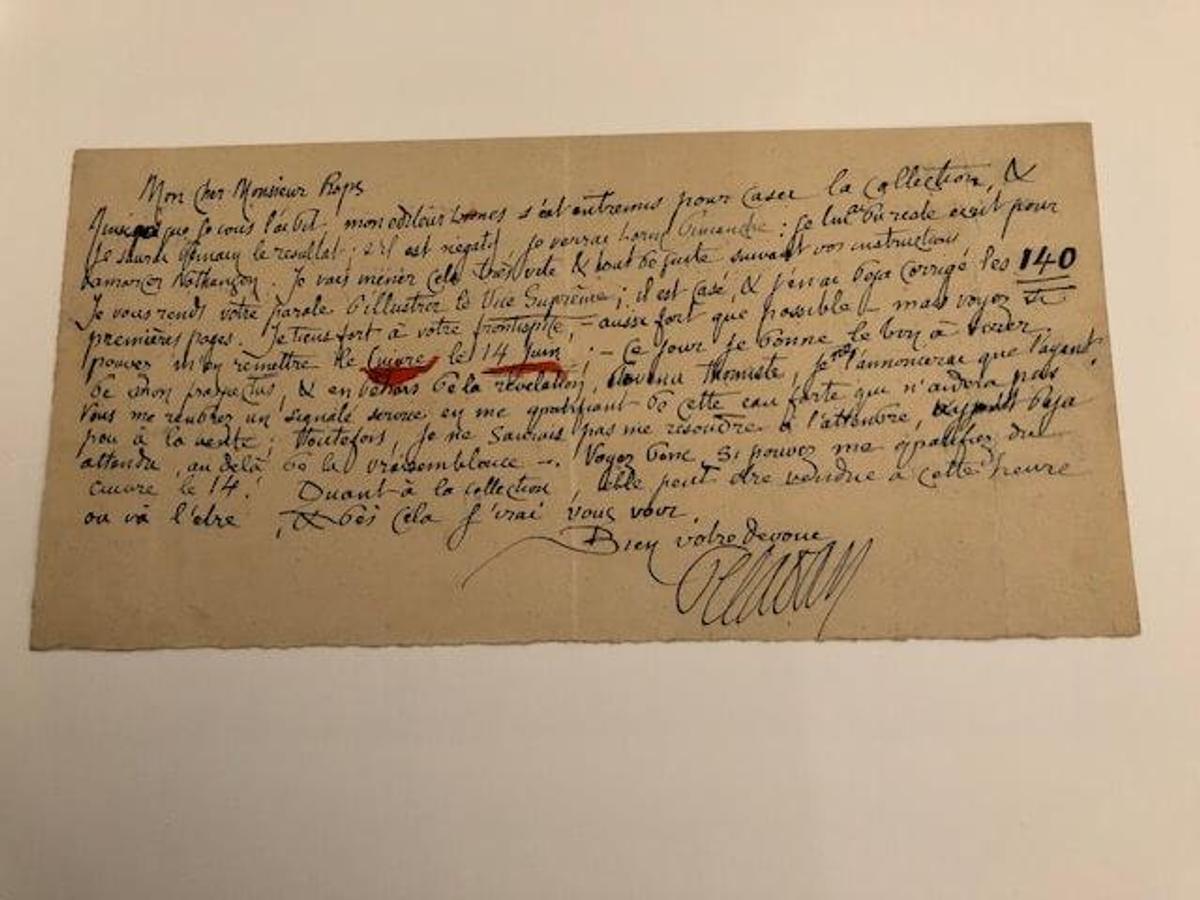 Mon Cher Monsieur Rops
que je vous l'ai dit, mon editeur s'est entremis pour caser la collection, &
Je saurai demain le resultat; s'il est négatif, je verrai dimanche: je lui ai du reste ecrit pour
. Je vais mener cela très vite & tout de suite suivant vos instructions
Je vous rends votre parole d'illustrer le Vice Suprême; il est casé, & j'en ai deja corrigé les 140
premières pages. Je tiens fort à votre frontispice, - aussi fort que possible - mais voyez si
pouvez m'en remettre le Cuivre le 14 Juin; - Ce jour je donne le bon à tirer
de mon prospectus, & en dehors de la révélation, je l'annoncerai que l'ayant.
Vous me rendrez un signalé service en me gratifiant de cette eau forte qui n'aidera pas
peu à la vente; toutefois, je ne saurais pas me résoudre à l'attendre, ayant deja
attendu, au delà de la vraisemblance -. Voyez donc si pouvez me gratifier du
cuivre le 14! Quant à la collection, elle peut être vendue à cette heure
ou va l'etre, & dès cela j'irai vous voir.
Bien votre devoué